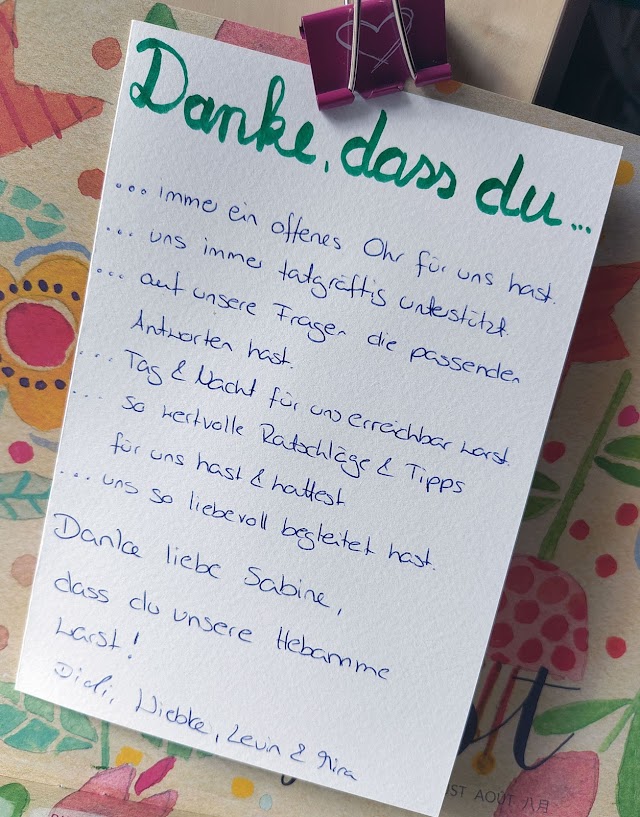 Danke, dass du...
... imme ein offenes Ohr für uns hast.
... uns immer tatgräftig unterstützt.
... auf unsere Fragen die passenden
Antworten hast.
... Tag & Nacht für uns erreichbar warst.
... so wertvolle Ratschläge & Tipps
für uns hast & hattest
... uns so liebevoll begleitet hast.
Danke liebe Sabine,
dass du unsere Hebamme
warst!
Didi, Wiebke, Levin &
ST AOÛT 八月